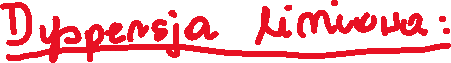 Dyspersja liniowa: